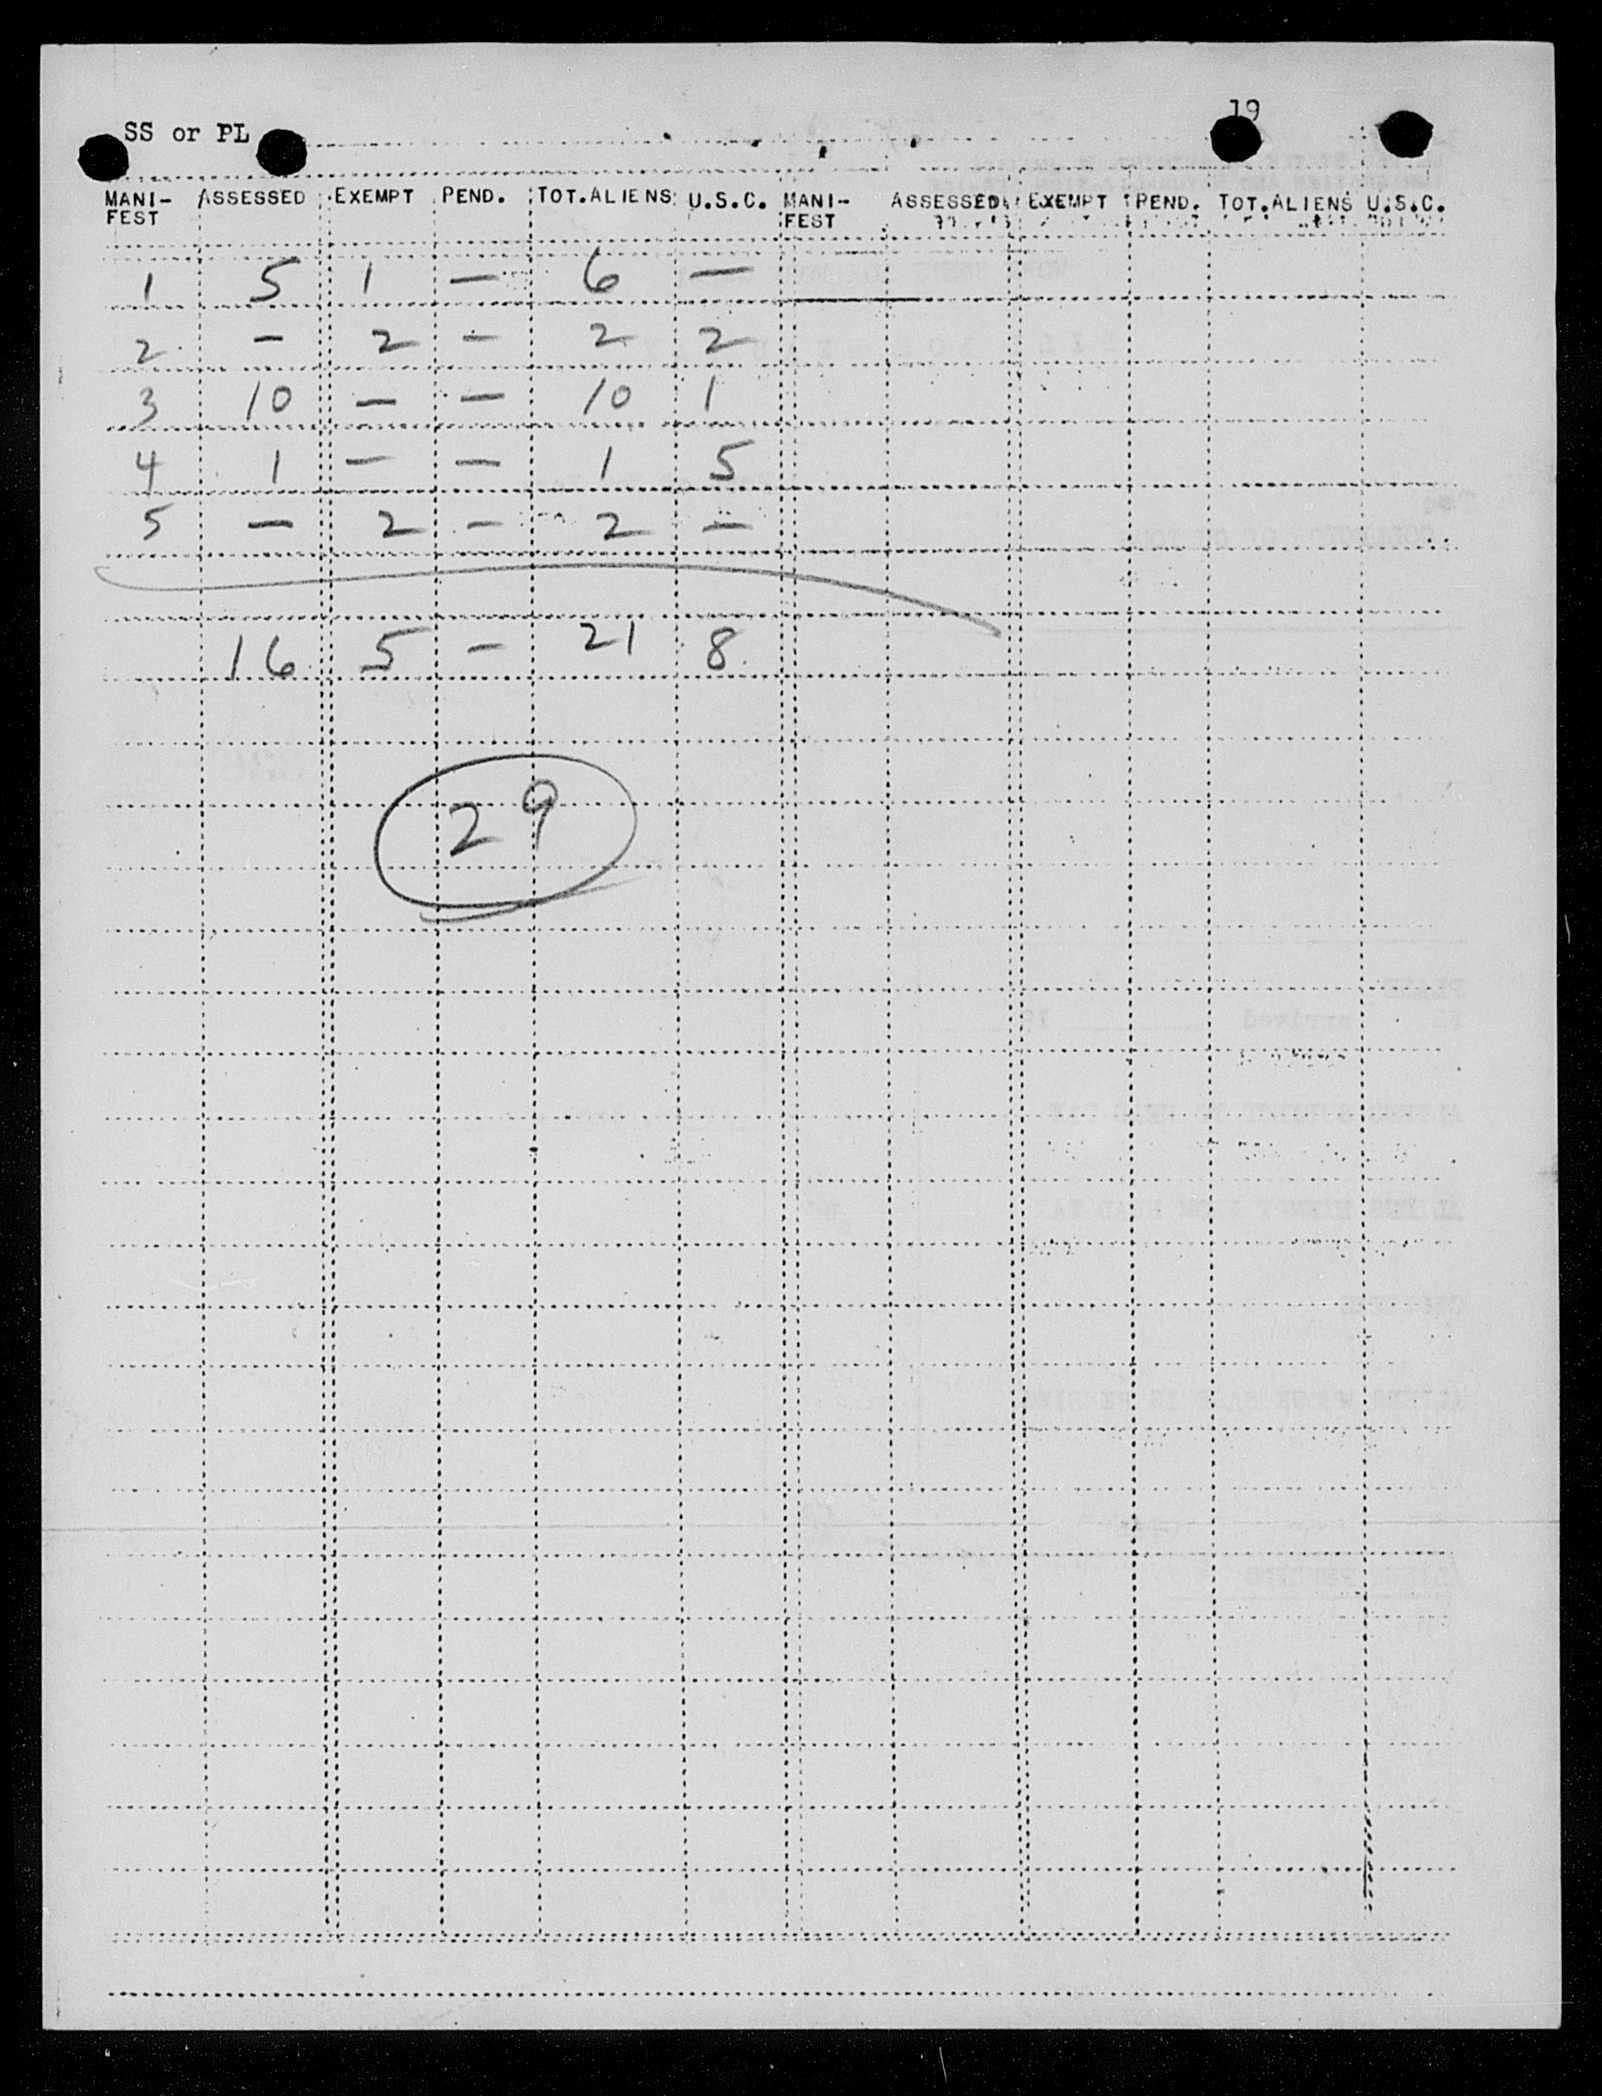 19
SS or PL
MANI- ASSESSED EXEMPT PEND. TOT.ALIENS U.S.C. MANI- ASSESSED EXEMPT PEND. TOT.ALIENS U.S.C.
FEST FEST
1 5 1 — 6 —
2 — 2 — 2 2
3 10 — — 10 1
4 1 — — 1 5
5 — 2 — 2 —
16 5 — 21 8
29